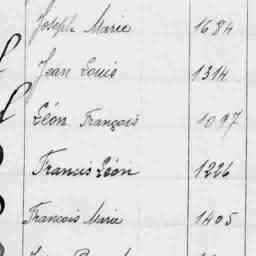 Joseph Marie 1684
Jean Louis 1314
Léon François 1097
Francis Léon 1226
Francois Marie 1405